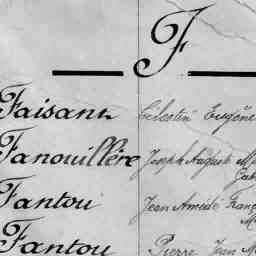 F
Faisant Célestin Eugène
Fanouillère Joseph Auguste
Fantou Jean Amédé
Fantou Pierre Jean